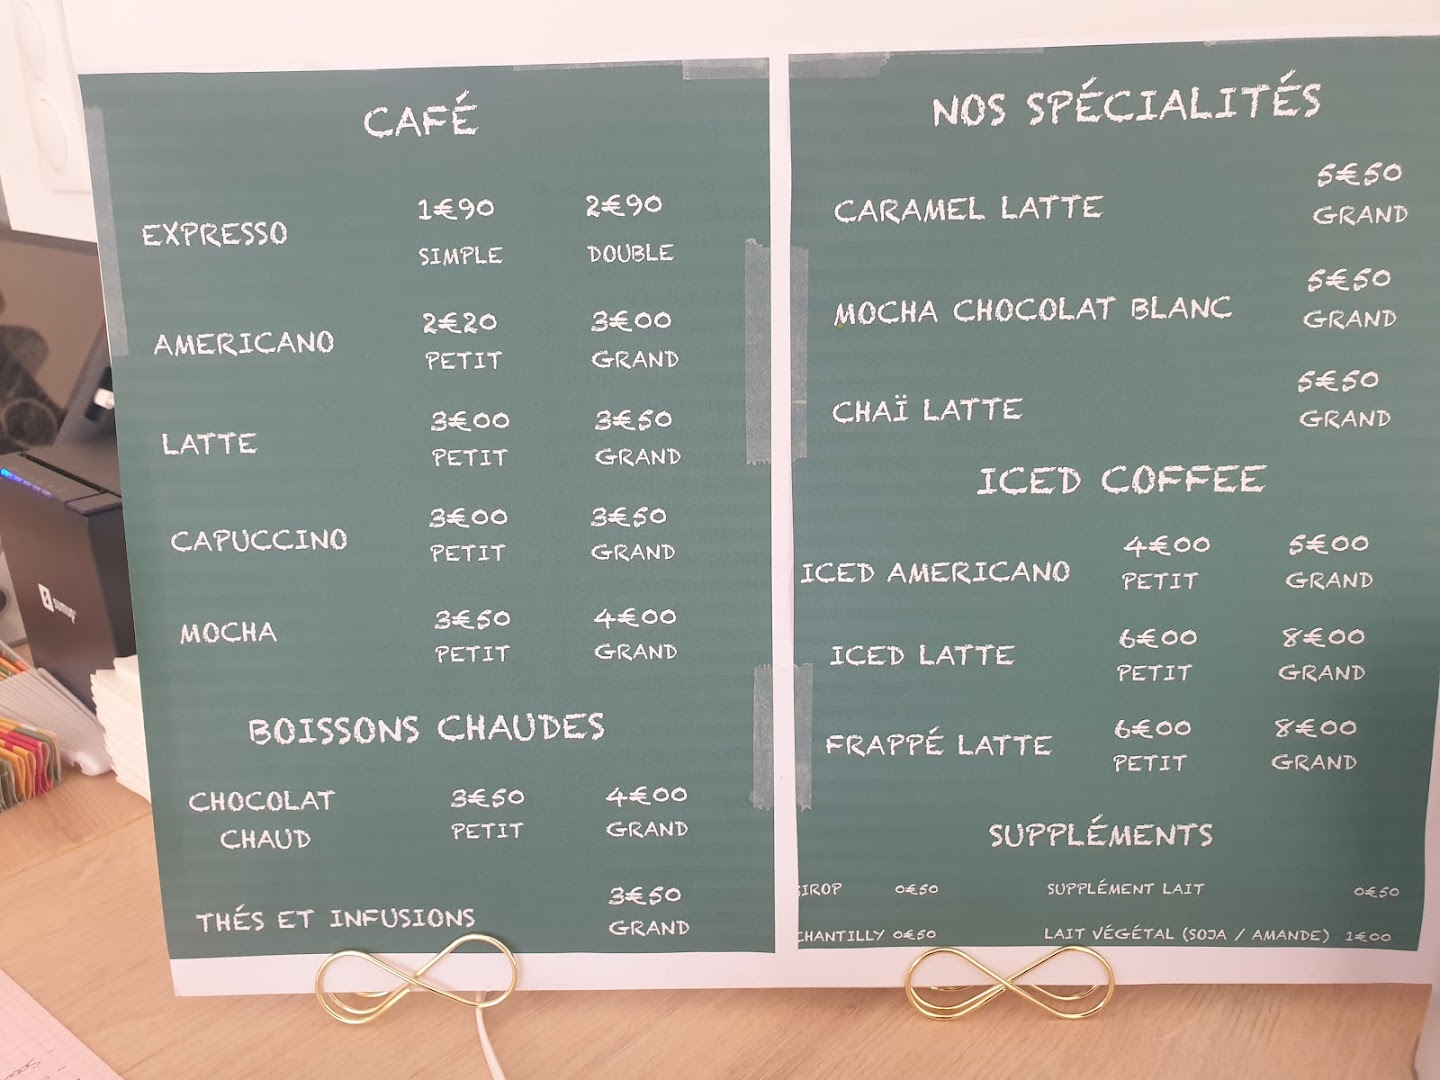 CAFÉ
EXPRESSO 1€90 2€90
SIMPLE DOUBLE
AMERICANO 2€20 3€00
PETIT GRAND
LATTE 3€00 3€50
PETIT GRAND
CAPUCCINO 3€00 3€50
PETIT GRAND
MOCHA 3€50 4€00
PETIT GRAND
BOISSONS CHAUDES
CHOCOLAT 3€50 4€00
CHAUD PETIT GRAND
THÉS ET INFUSIONS 3€50
GRAND
NOS SPÉCIALITÉS
CARAMEL LATTE 5€50
GRAND
MOCHA CHOCOLAT BLANC 5€50
GRAND
CHAÏ LATTE 5€50
GRAND
ICED COFFEE
ICED AMERICANO 4€00 5€00
PETIT GRAND
ICED LATTE 6€00 8€00
PETIT GRAND
FRAPPÉ LATTE 6€00 8€00
PETIT GRAND
SUPPLÉMENTS
SIROP 0€50 SUPPLÉMENT LAIT 0€50
CHANTILLY 0€50 LAIT VÉGÉTAL (SOJA / AMANDE) 1€00
sumup